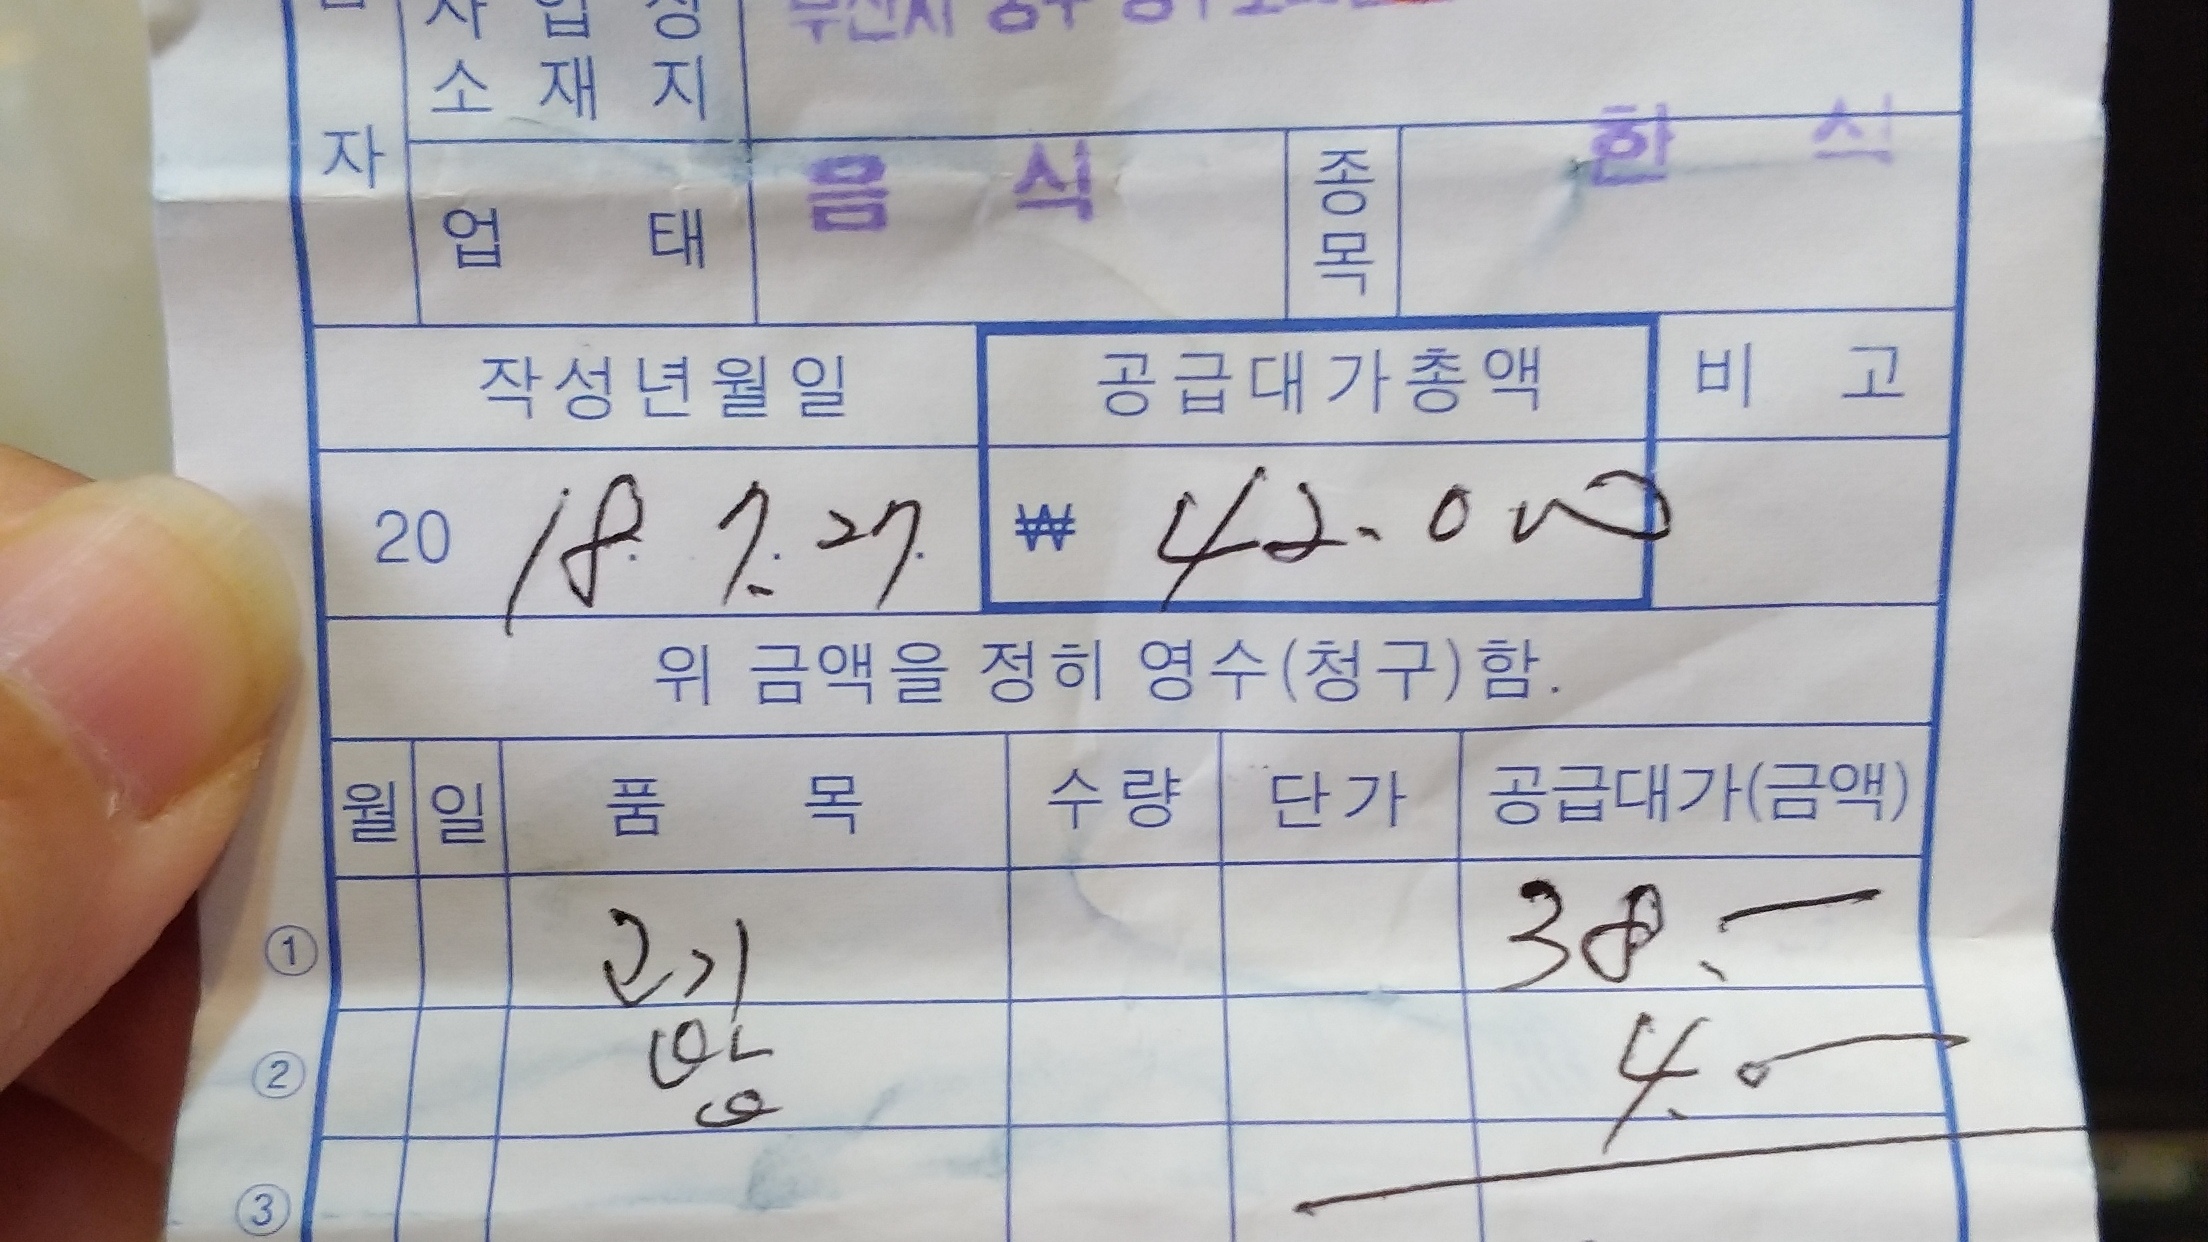 사 업 장
소 재 지
부산시 중구
자
업 태 음 식 종목 한 식
작성년월일 공급대가총액 비 고
20 18. 7. 27. ₩ 42.000
위 금액을 정히 영수(청구)함.
월 일 품 목 수량 단가 공급대가(금액)
① 고기 38.-
② 4.-
③